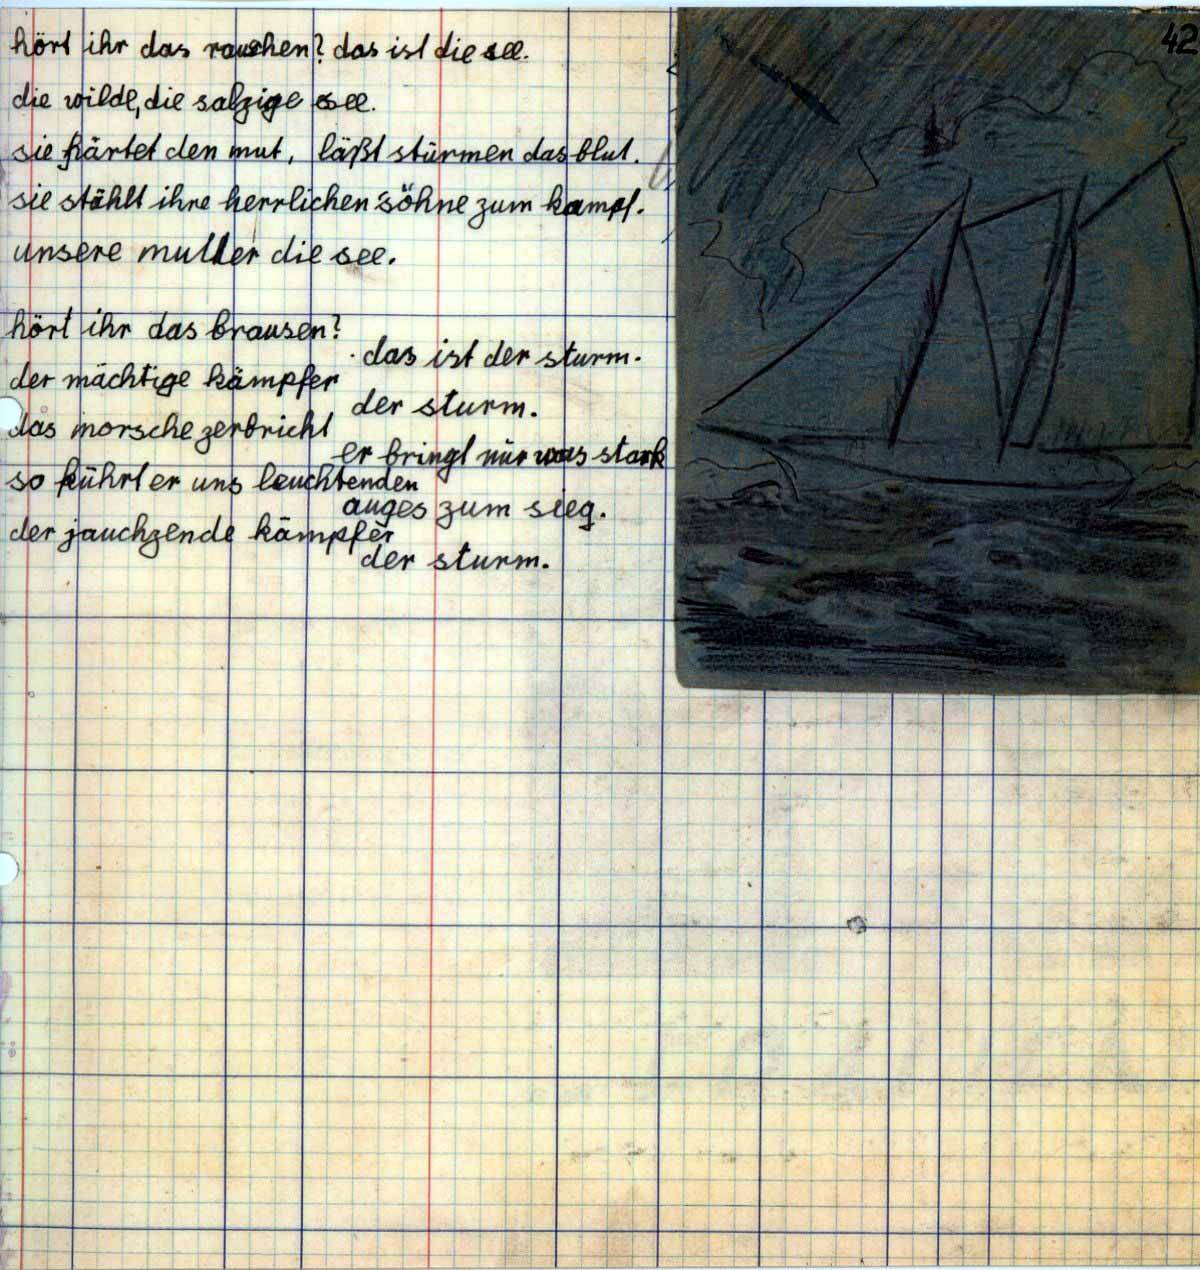 42
hört ihr das rauschen? das ist die see.
die wilde, die salzige see.
sie härtet den mut, läßt stürmen das blut.
sie stählt ihre herrlichen söhne zum kampf.
unsere mutter die see.
hört ihr das brausen?
das ist der sturm.
der mächtige kämpfer
der sturm.
das morsche zerbricht
er bringt nur was stark
so führt er uns leuchtenden
auges zum sieg.
der jauchzende kämpfer
der sturm.